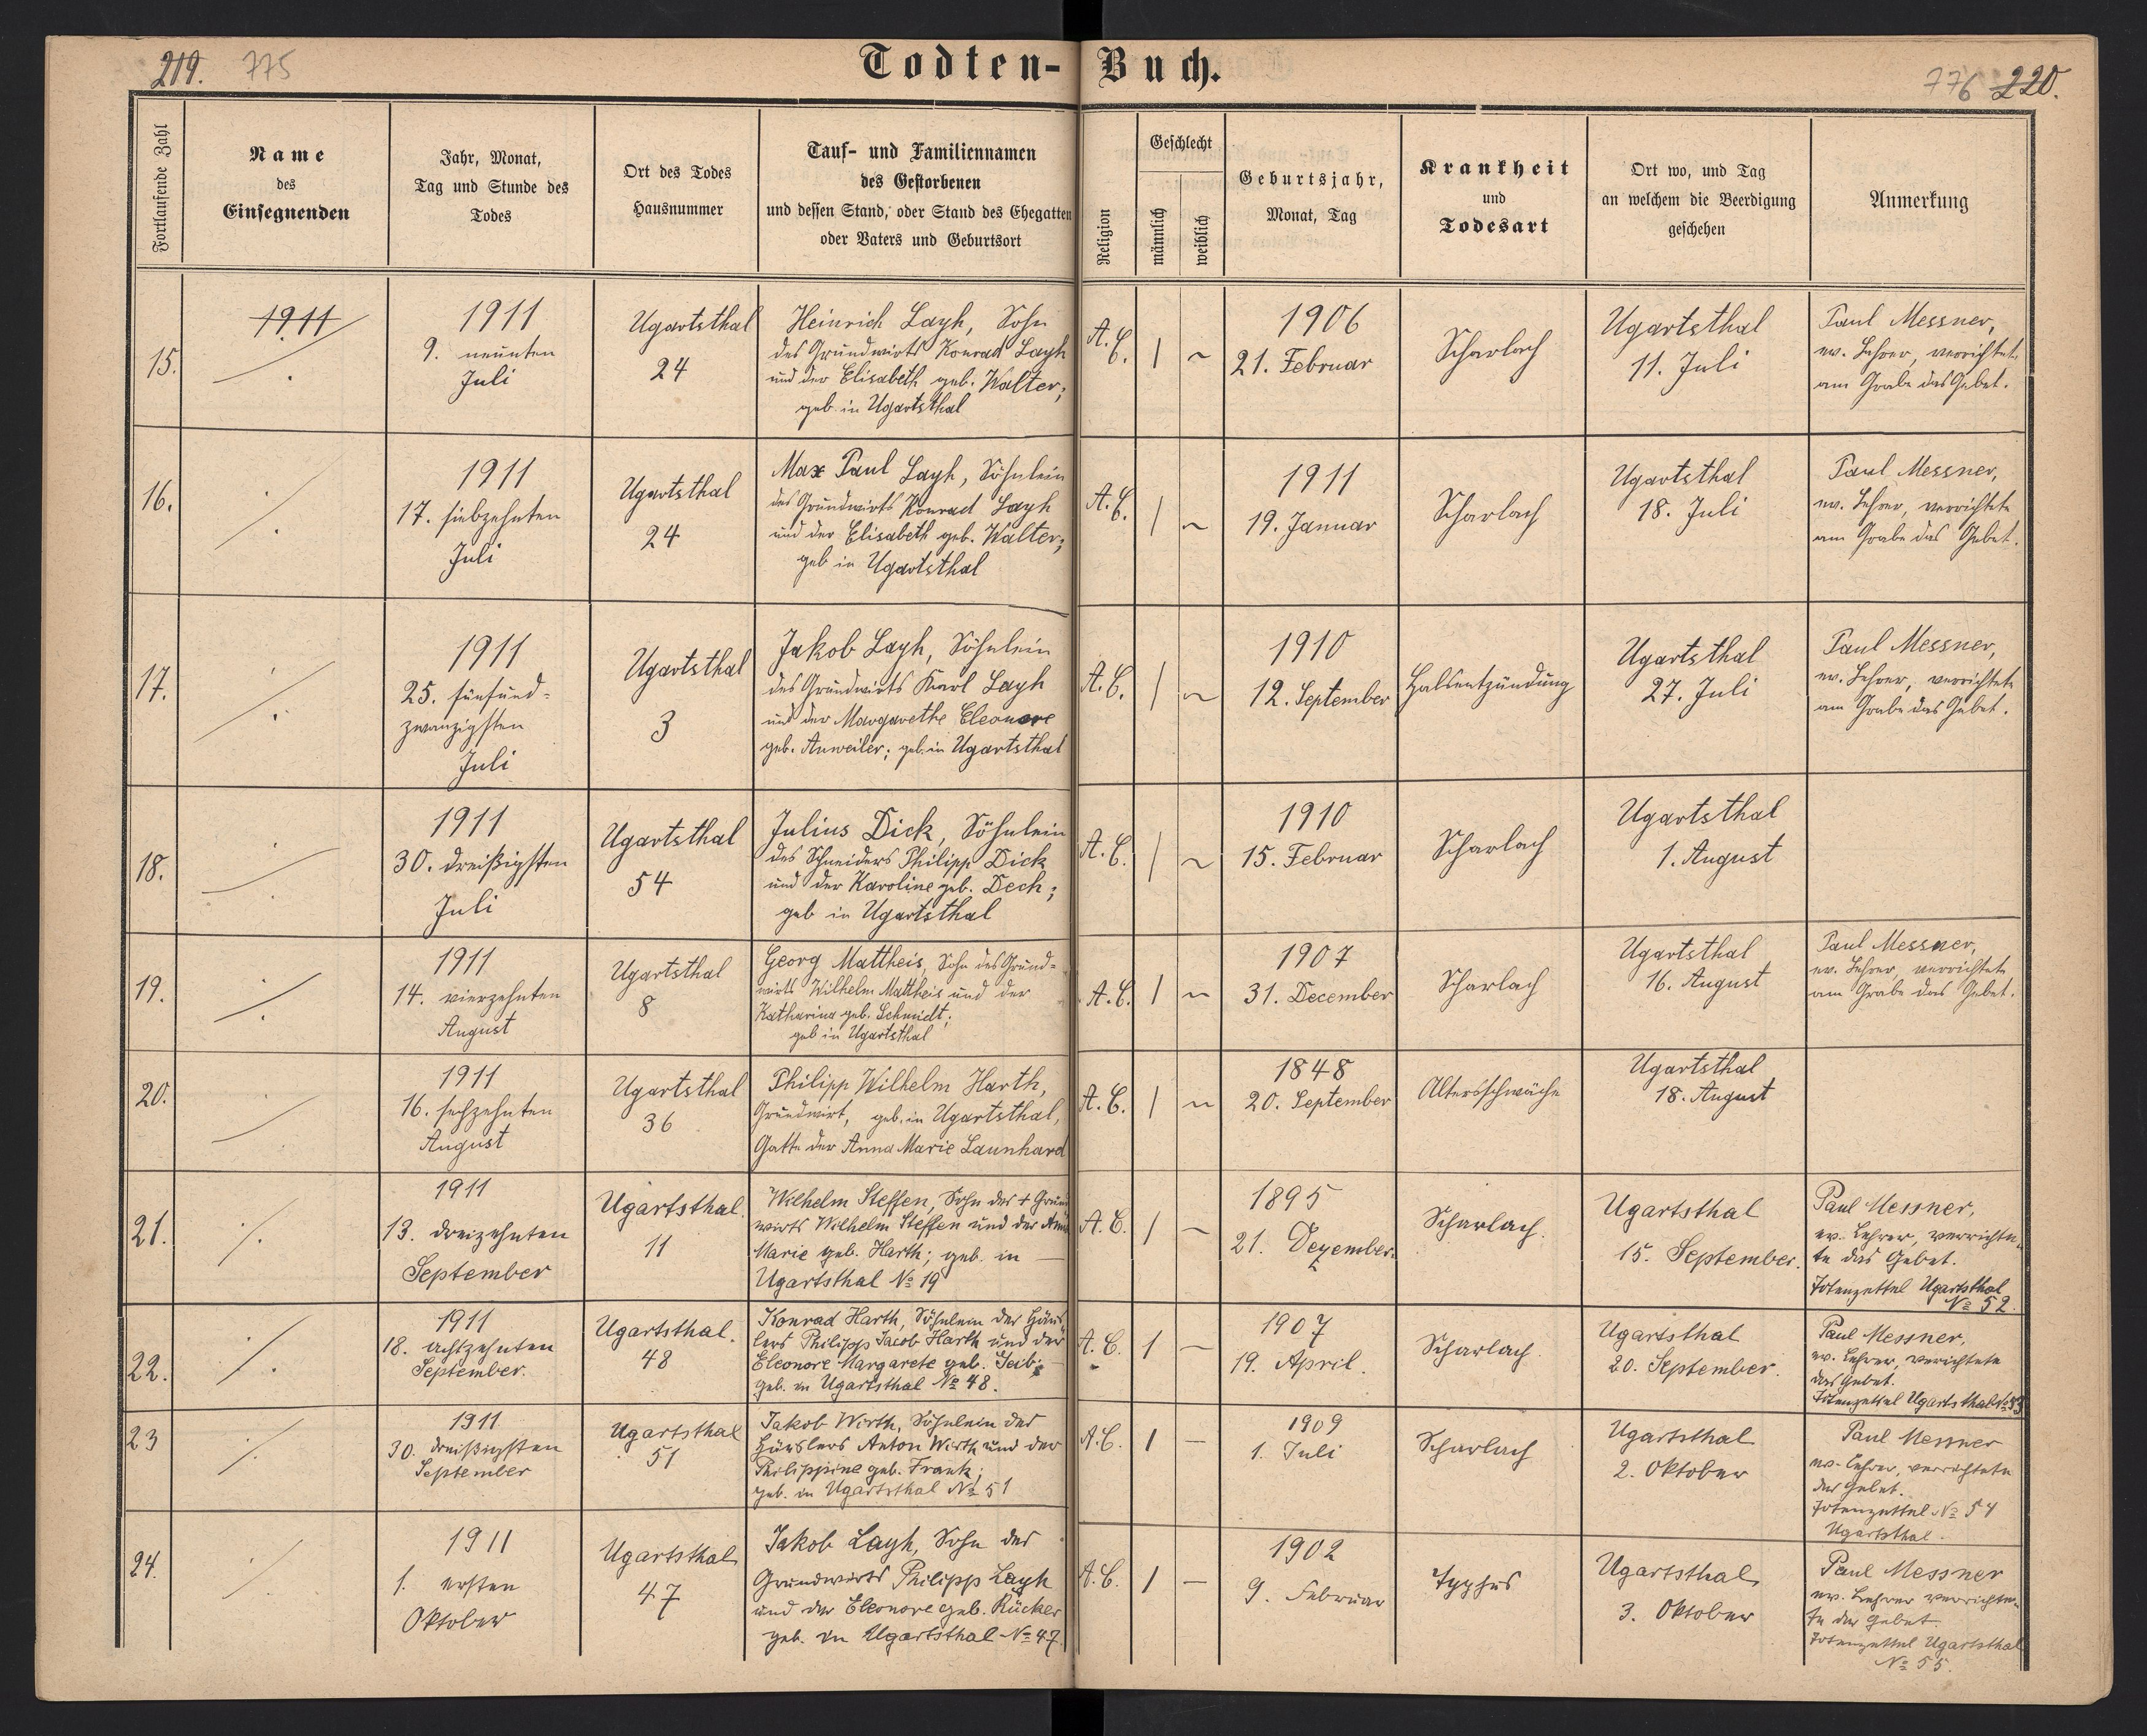 219. 775
Todten-Buch.
776 220.
Fortlaufende Zahl
Name
des
Einsegnenden
Jahr, Monat,
Tag und Stunde des
Todes
Ort des Todes
Hausnummer
Tauf- und Familiennamen
des Gestorbenen
und dessen Stand, oder Stand des Ehegatten
oder Vaters und Geburtsort
Religion
Geschlecht
männlich
weiblich
Geburtsjahr,
Monat, Tag
Krankheit
und
Todesart
Ort wo, und Tag
an welchem die Beerdigung
geschehen
Anmerkung
15.
1911
1911
9. neunten
Juli
Ugartsthal
24
Heinrich Layh, Sohn
des Grundwirts Konrad Layh
und der Elisabeth geb. Walter;
geb. in Ugartsthal
A. C.
1 ~
1906
21. Februar
Scharlach
Ugartsthal
11. Juli
Paul Messner,
ev. Lehrer, verrichtete
am Grabe das Gebet.
16.
1911
17. siebzehnten
Juli
Ugartsthal
24
Max Paul Layh, Söhnlein
des Grundwirts Konrad Layh
und der Elisabeth geb. Walter;
geb in Ugartsthal
A. C.
1 ~
1911
19. Januar
Scharlach
Ugartsthal
18. Juli
Paul Messner,
ev. Lehrer, verrichtete
am Grabe das Gebet.
17.
1911
25. fünfund-
zwanzigsten
Juli
Ugartsthal
3
Jakob Layh, Söhnlein
des Grundwirts Karl Layh
und der Margarethe Eleonore
geb. Anweiler; geb. in Ugartsthal
A. C.
1 ~
1910
12. September
Halsentzündung
Ugartsthal
27. Juli
Paul Messner,
ev. Lehrer, verrichtete
am Grabe das Gebet.
18.
1911
30. dreißigsten
Juli
Ugartsthal
54
Julius Dick, Söhnlein
des Schneiders Philipp Dick
und der Karoline geb. Dech;
geb in Ugartsthal
A. C.
1 ~
1910
15. Februar
Scharlach
Ugartsthal
1. August
19.
1911
14. vierzehnten
August
Ugartsthal
8
Georg Mattheis, Sohn des Grund-
wirts Wilhelm Mattheis und der
Katharina geb. Schmidt;
geb in Ugartsthal
A. C.
1 ~
1907
31. December
Scharlach
Ugartsthal
16. August
Paul Messner,
ev. Lehrer, verrichtete
am Grabe das Gebet.
20.
1911
16. sechzehnten
August
Ugartsthal
36
Philipp Wilhelm Harth,
Grundwirt, geb. in Ugartsthal,
Gatte der Anna Marie Launhard
A. C.
1 ~
1848
20. September
Altersschwäche
Ugartsthal
18. August
21.
1911
13. dreizehnten
September
Ugartsthal.
11
Wilhelm Steffen, Sohn des + Grund
wirts Wilhelm Steffen und der Anna
Marie geb. Harth; geb. in —
Ugartsthal № 19
A. C.
1 ~
1895
21. Dezember.
Scharlach.
Ugartsthal
15. September.
Paul Messner,
ev. Lehrer, verrichte-
te das Gebet.
Totenzettel Ugartsthal
№ 52.
22.
1911
18. achtzehnten
September.
Ugartsthal.
48
Konrad Harth, Söhnlein des Häus
lers Philipp Jacob Harth und der
Eleonore Margarete geb. Geib;
geb. in Ugartsthal № 48.
A. C.
1 —
1907
19. April.
Scharlach.
Ugartsthal
20. September.
Paul Messner,
ev. Lehrer, verichtete
das Gebet.
Totenzettel Ugartsthal № 53
23
1911
30. dreißigsten
September
Ugartsthal
51
Jakob Wirth, Söhnlein des
Häuslers Anton Wirth und der
Philippine geb. Frank;
geb. in Ugartsthal № 51
A. C.
1 —
1909
1. Juli
Scharlach
Ugartsthal
2. Oktober
Paul Messner
ev. Lehrer, verrichtete
das Gebet.
Totenzettel № 54
Ugartsthal.
24.
1911
1. ersten
Oktober
Ugartsthal
47
Jakob Layh, Sohn des
Grundwirts Philipp Layh
und der Eleonore geb. Rücker
geb. in Ugartsthal № 47.
A. C.
1 —
1902
9. Februar
Typhus
Ugartsthal
3. Oktober
Paul Messner
ev. Lehrer verrichte-
te das Gebet.
Totenzettel Ugartsthal
№ 55.